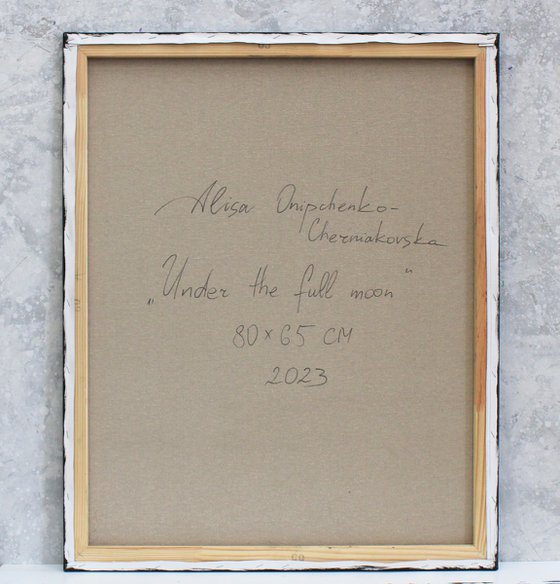 Alisa Onipchenko-
Cherniakovska
„Under the full moon“
80×65 CM
2023